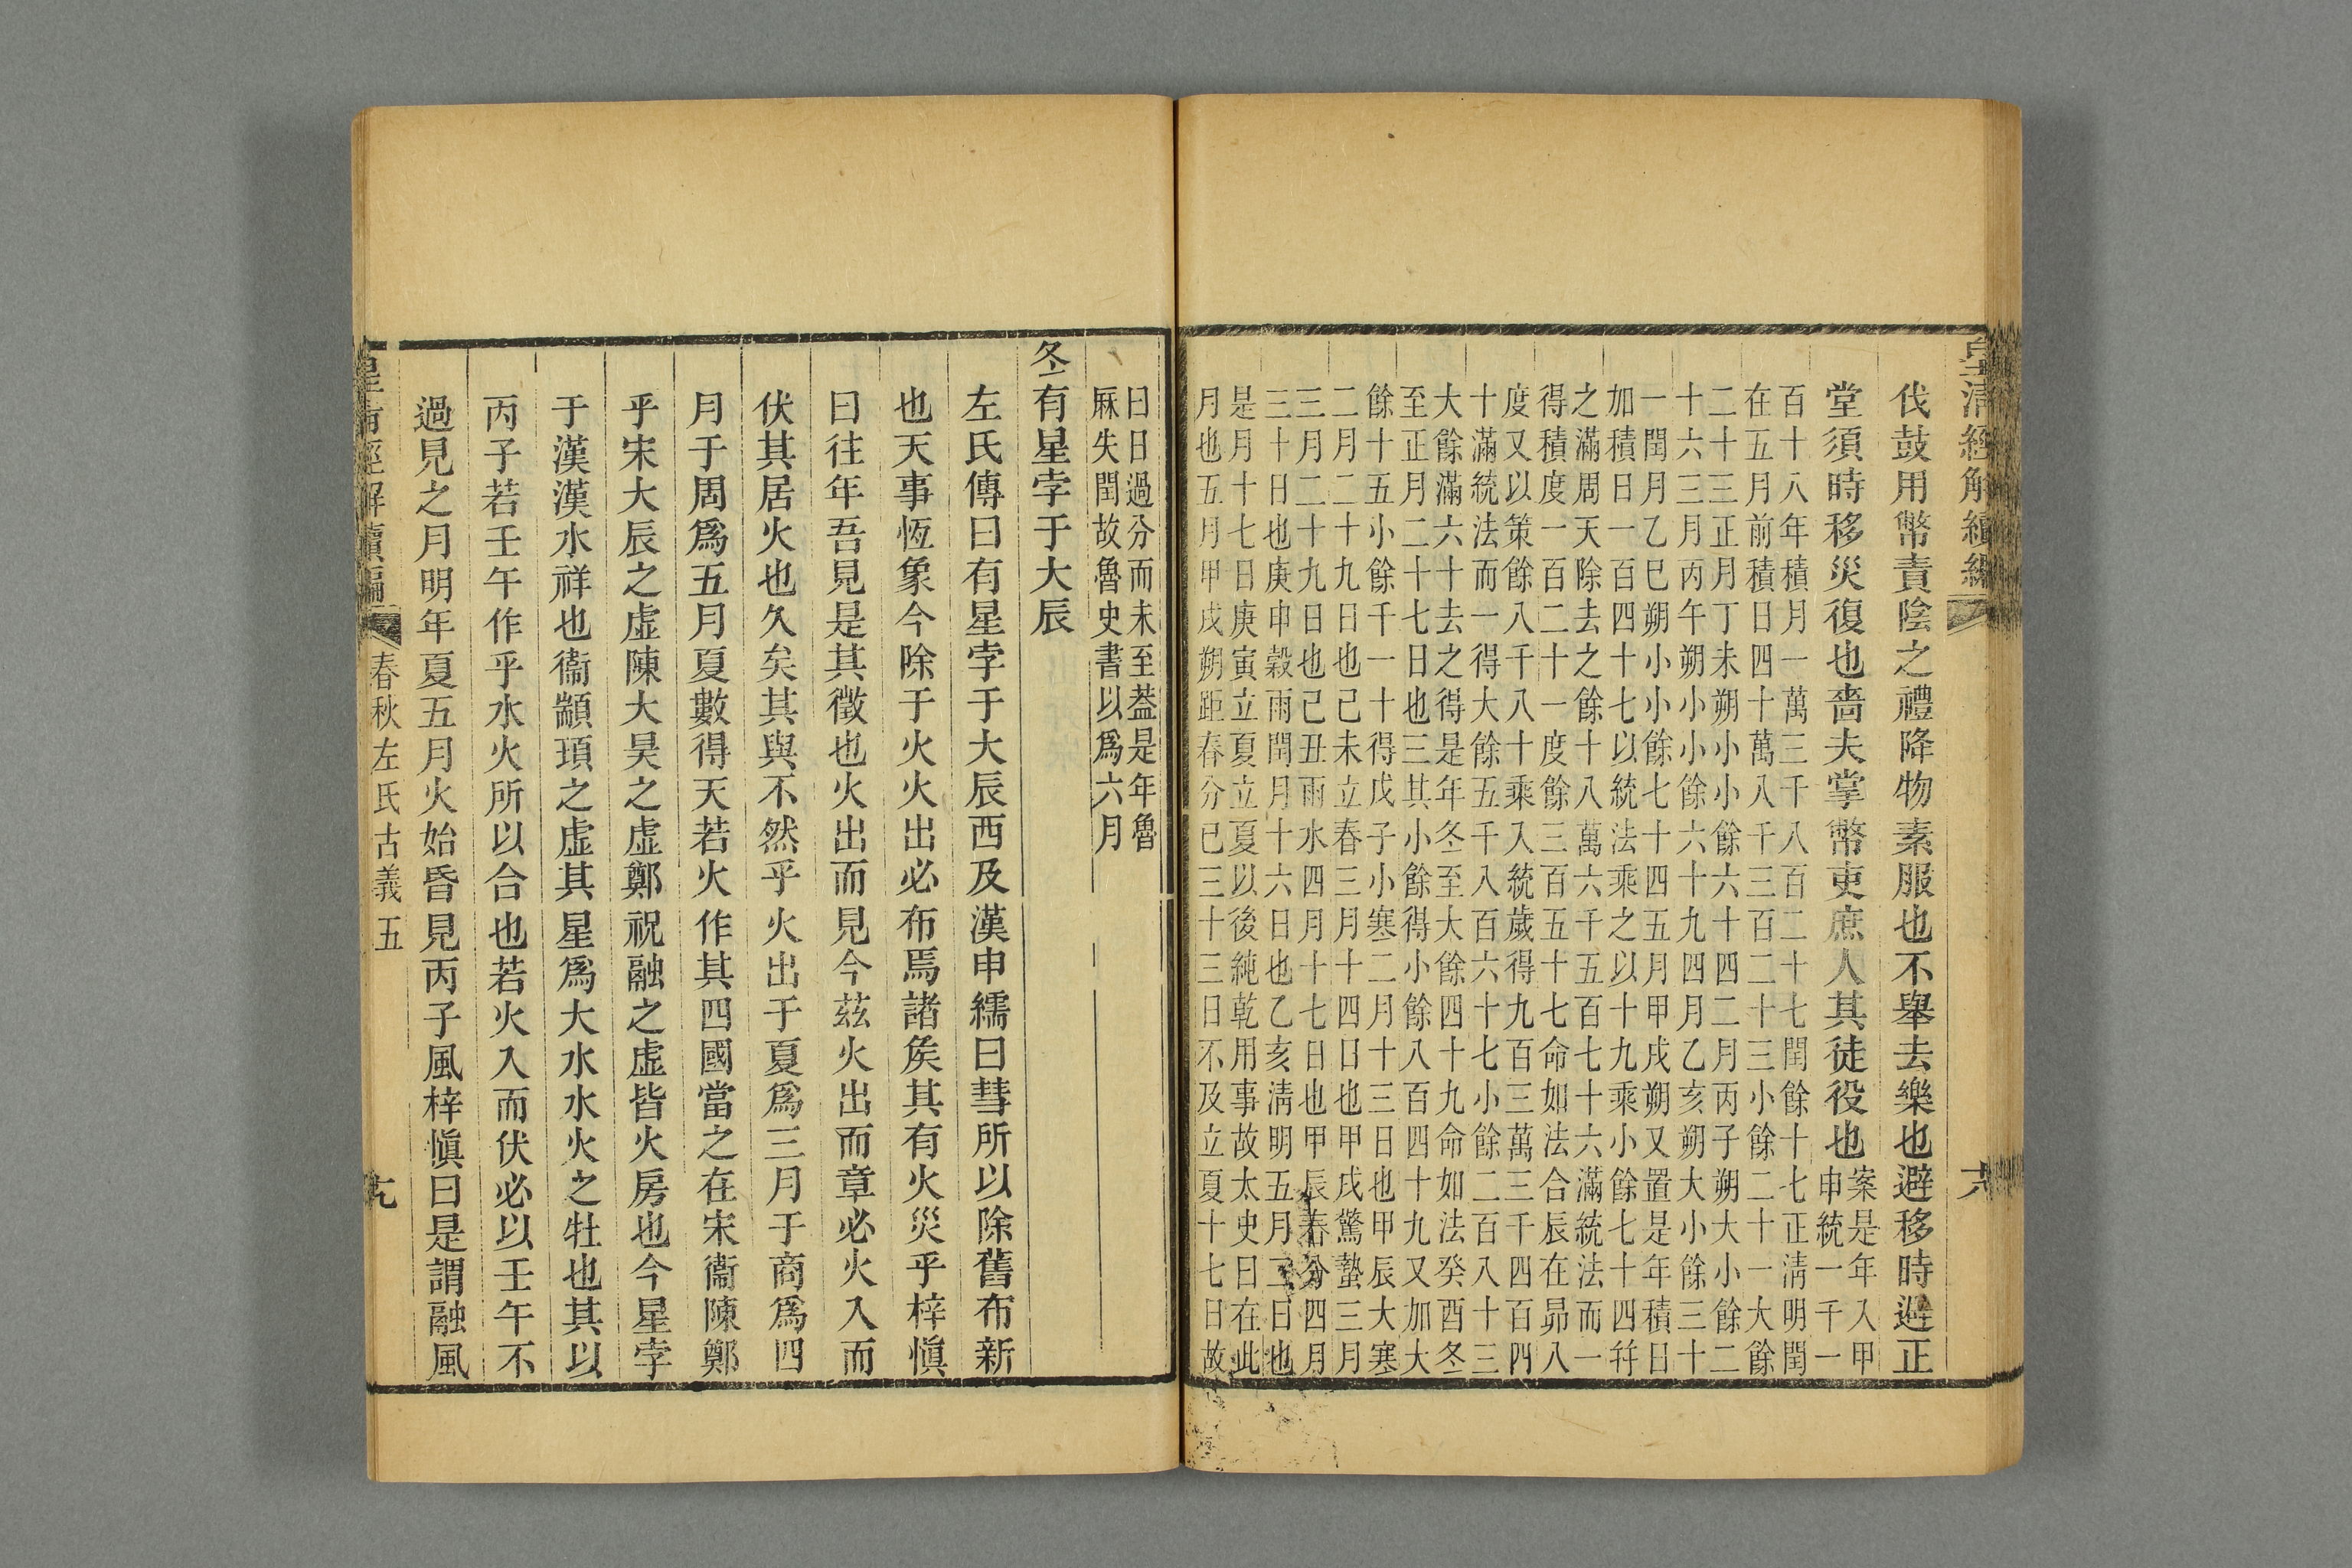 皇清經解續編
伐鼓用幣責陰之禮降物素服也不舉去樂也避移時避正
堂須時移災復也嗇夫掌幣吏庶人其徒役也
案是年入甲
申統一千一
百十八年積月一萬三千八百二十七閏餘十七正清明閏
在五月前積日四十萬八千三百二十三小餘二十一大餘
二十三正月丁未朔小小餘六十四二月丙子朔大小餘二
十六三月丙午朔小小餘六十九四月乙亥朔大小餘三十
一閏月乙巳朔小小餘七十四五月甲戌朔又置是年積日
加積日一百四十七以統法乘之以十九乘小餘七十四并
之滿周天除去之餘十八萬六千五百七十六滿統法而一
得積度一百二十一度餘三百五十七命如法合辰在昴八
度又以策餘八千八十乘入統歲得九百三萬三千四百四
十滿統法而一得大餘五千八百六十七小餘二百八十三
大餘滿六十去之得是年冬至大餘四十九命如法癸酉冬
至正月二十七日也三其小餘得小餘八百四十九又加大
餘十五小餘千一十得戊子小寒二月十三日也甲辰大寒
二月二十九日也己未立春三月十四日也甲戌驚蟄三月
三月二十九日也己丑雨水四月十七日也甲辰春分四月
三十日也庚申穀雨閏月十六日也乙亥清明五月二日也
是月十七日庚寅立夏立夏以後純乾用事故太史曰在此
月也五月甲戌朔距春分已三十三日不及立夏十七日故
六
曰日過分而未至蓋是年魯
厤失閏故魯史書以爲六月
冬有星孛于大辰
左氏傳曰有星孛于大辰西及漢申繻曰彗所以除舊布新
也天事恆象今除于火火出必布焉諸矦其有火災乎梓愼
曰往年吾見是其徵也火出而見今茲火出而章必火入而
伏其居火也久矣其與不然乎火出于夏爲三月于商爲四
月于周爲五月夏數得天若火作其四國當之在宋衞陳鄭
乎宋大辰之虛陳大昊之虛鄭祝融之虛皆火房也今星孛
于漢漢水祥也衞顓頊之虛其星爲大水水火之牡也其以
丙子若壬午作乎水火所以合也若火入而伏必以壬午不
過見之月明年夏五月火始昏見丙子風梓愼曰是謂融風
皇清經解續編
春秋左氏古義五